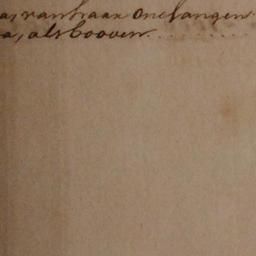 as van haar ontfangen
a, als booven